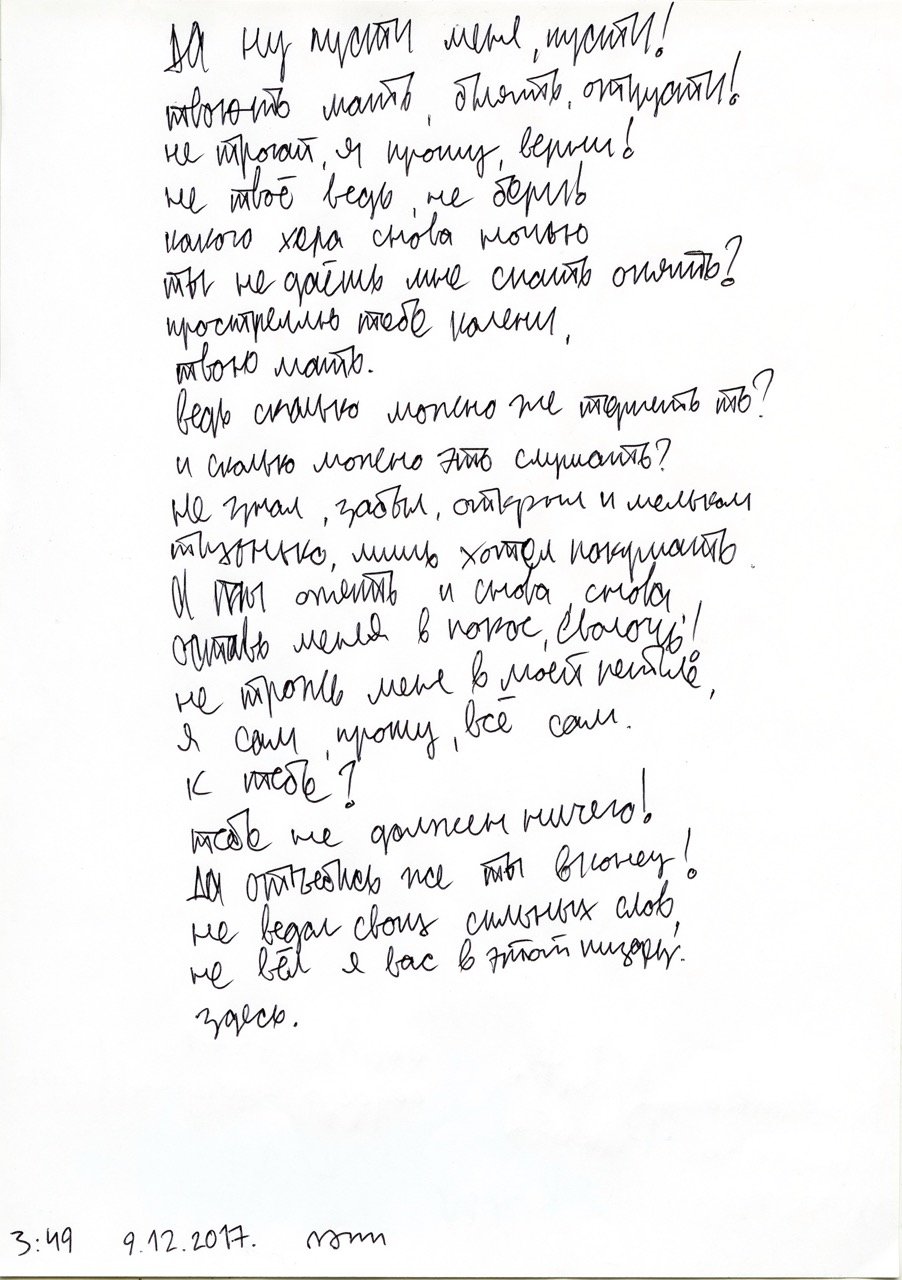 да ну пусти меня, пусти!
твоють мать, блять, отпусти!
не трогай, я прошу, верни!
не твоё ведь, не бери
какого хера снова ночью
ты не даёшь мне спать опять?
прострелю тебе колени,
твою мать.
ведь сколько можно же терпеть то?
и сколько можно это слушать?
не знал, забыл, открыл и мельком
тихонько, лишь хотел покушать.
И ты опять и снова, снова
оставь меня в покое, сволочь!
не трожь меня в моей петле,
я сам, прошу, всё сам.
к тебе?
тебе не должен ничего!
да отъебись же ты вконец!
не ведал своих сильных слов,
не вёл я вас в этой
здесь.
3:49 9.12.2017.